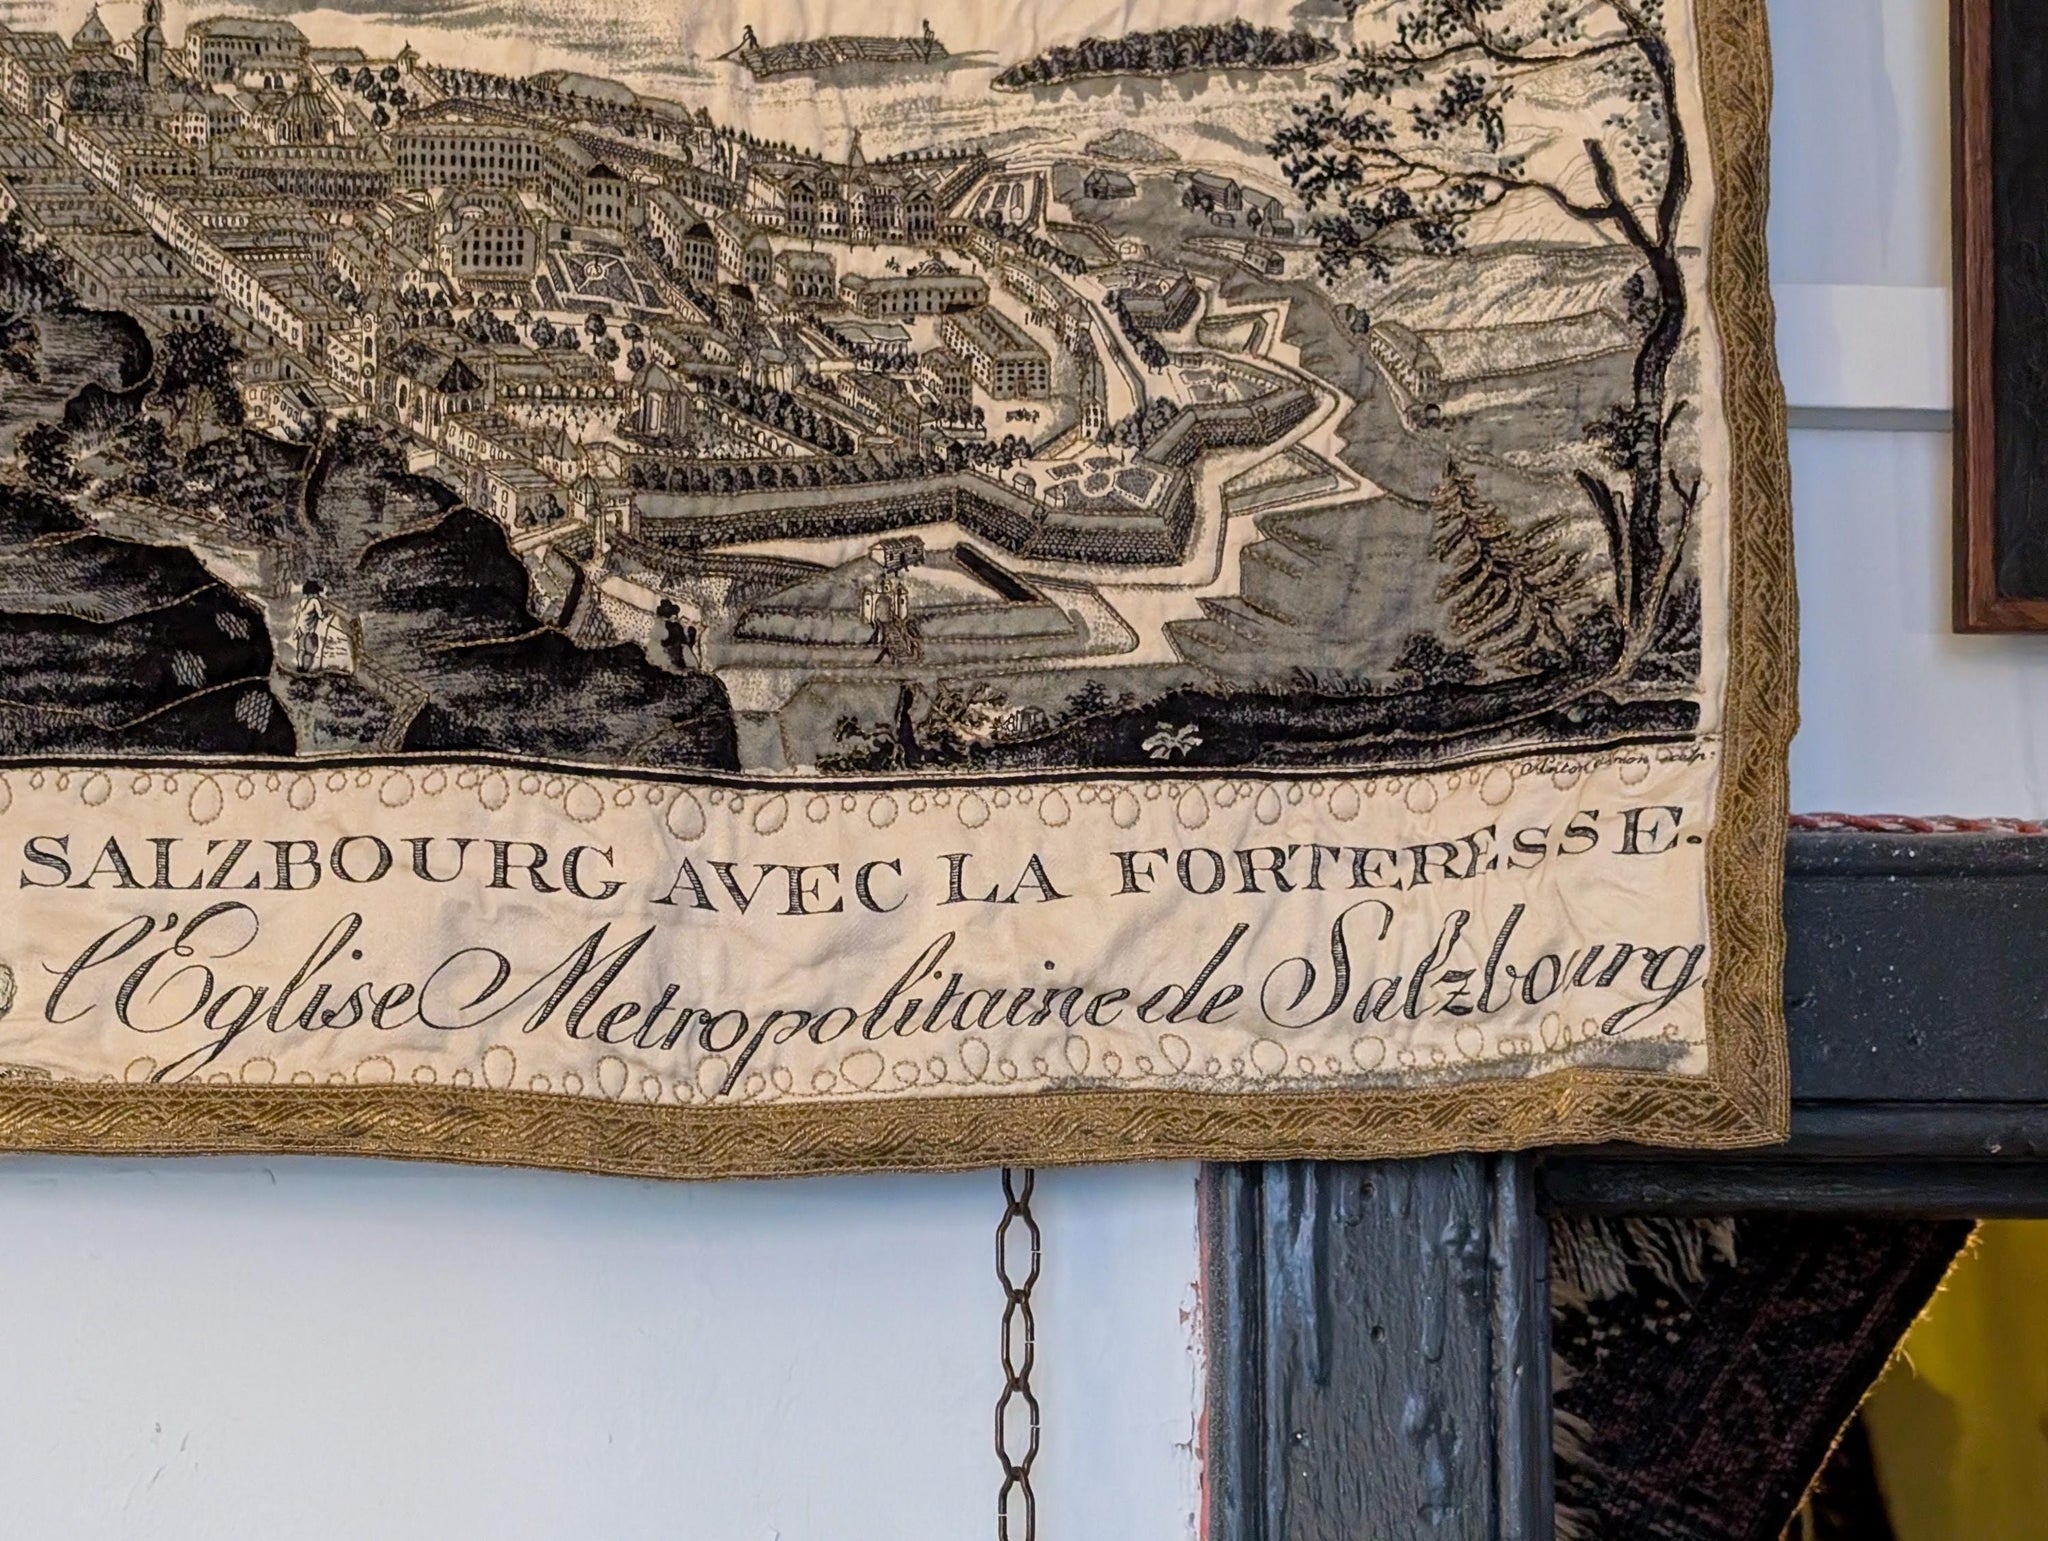 Anton Amon Sculp:
SALZBOURG AVEC LA FORTERESSE.
l'Eglise Metropolitaine de Salzbourg.